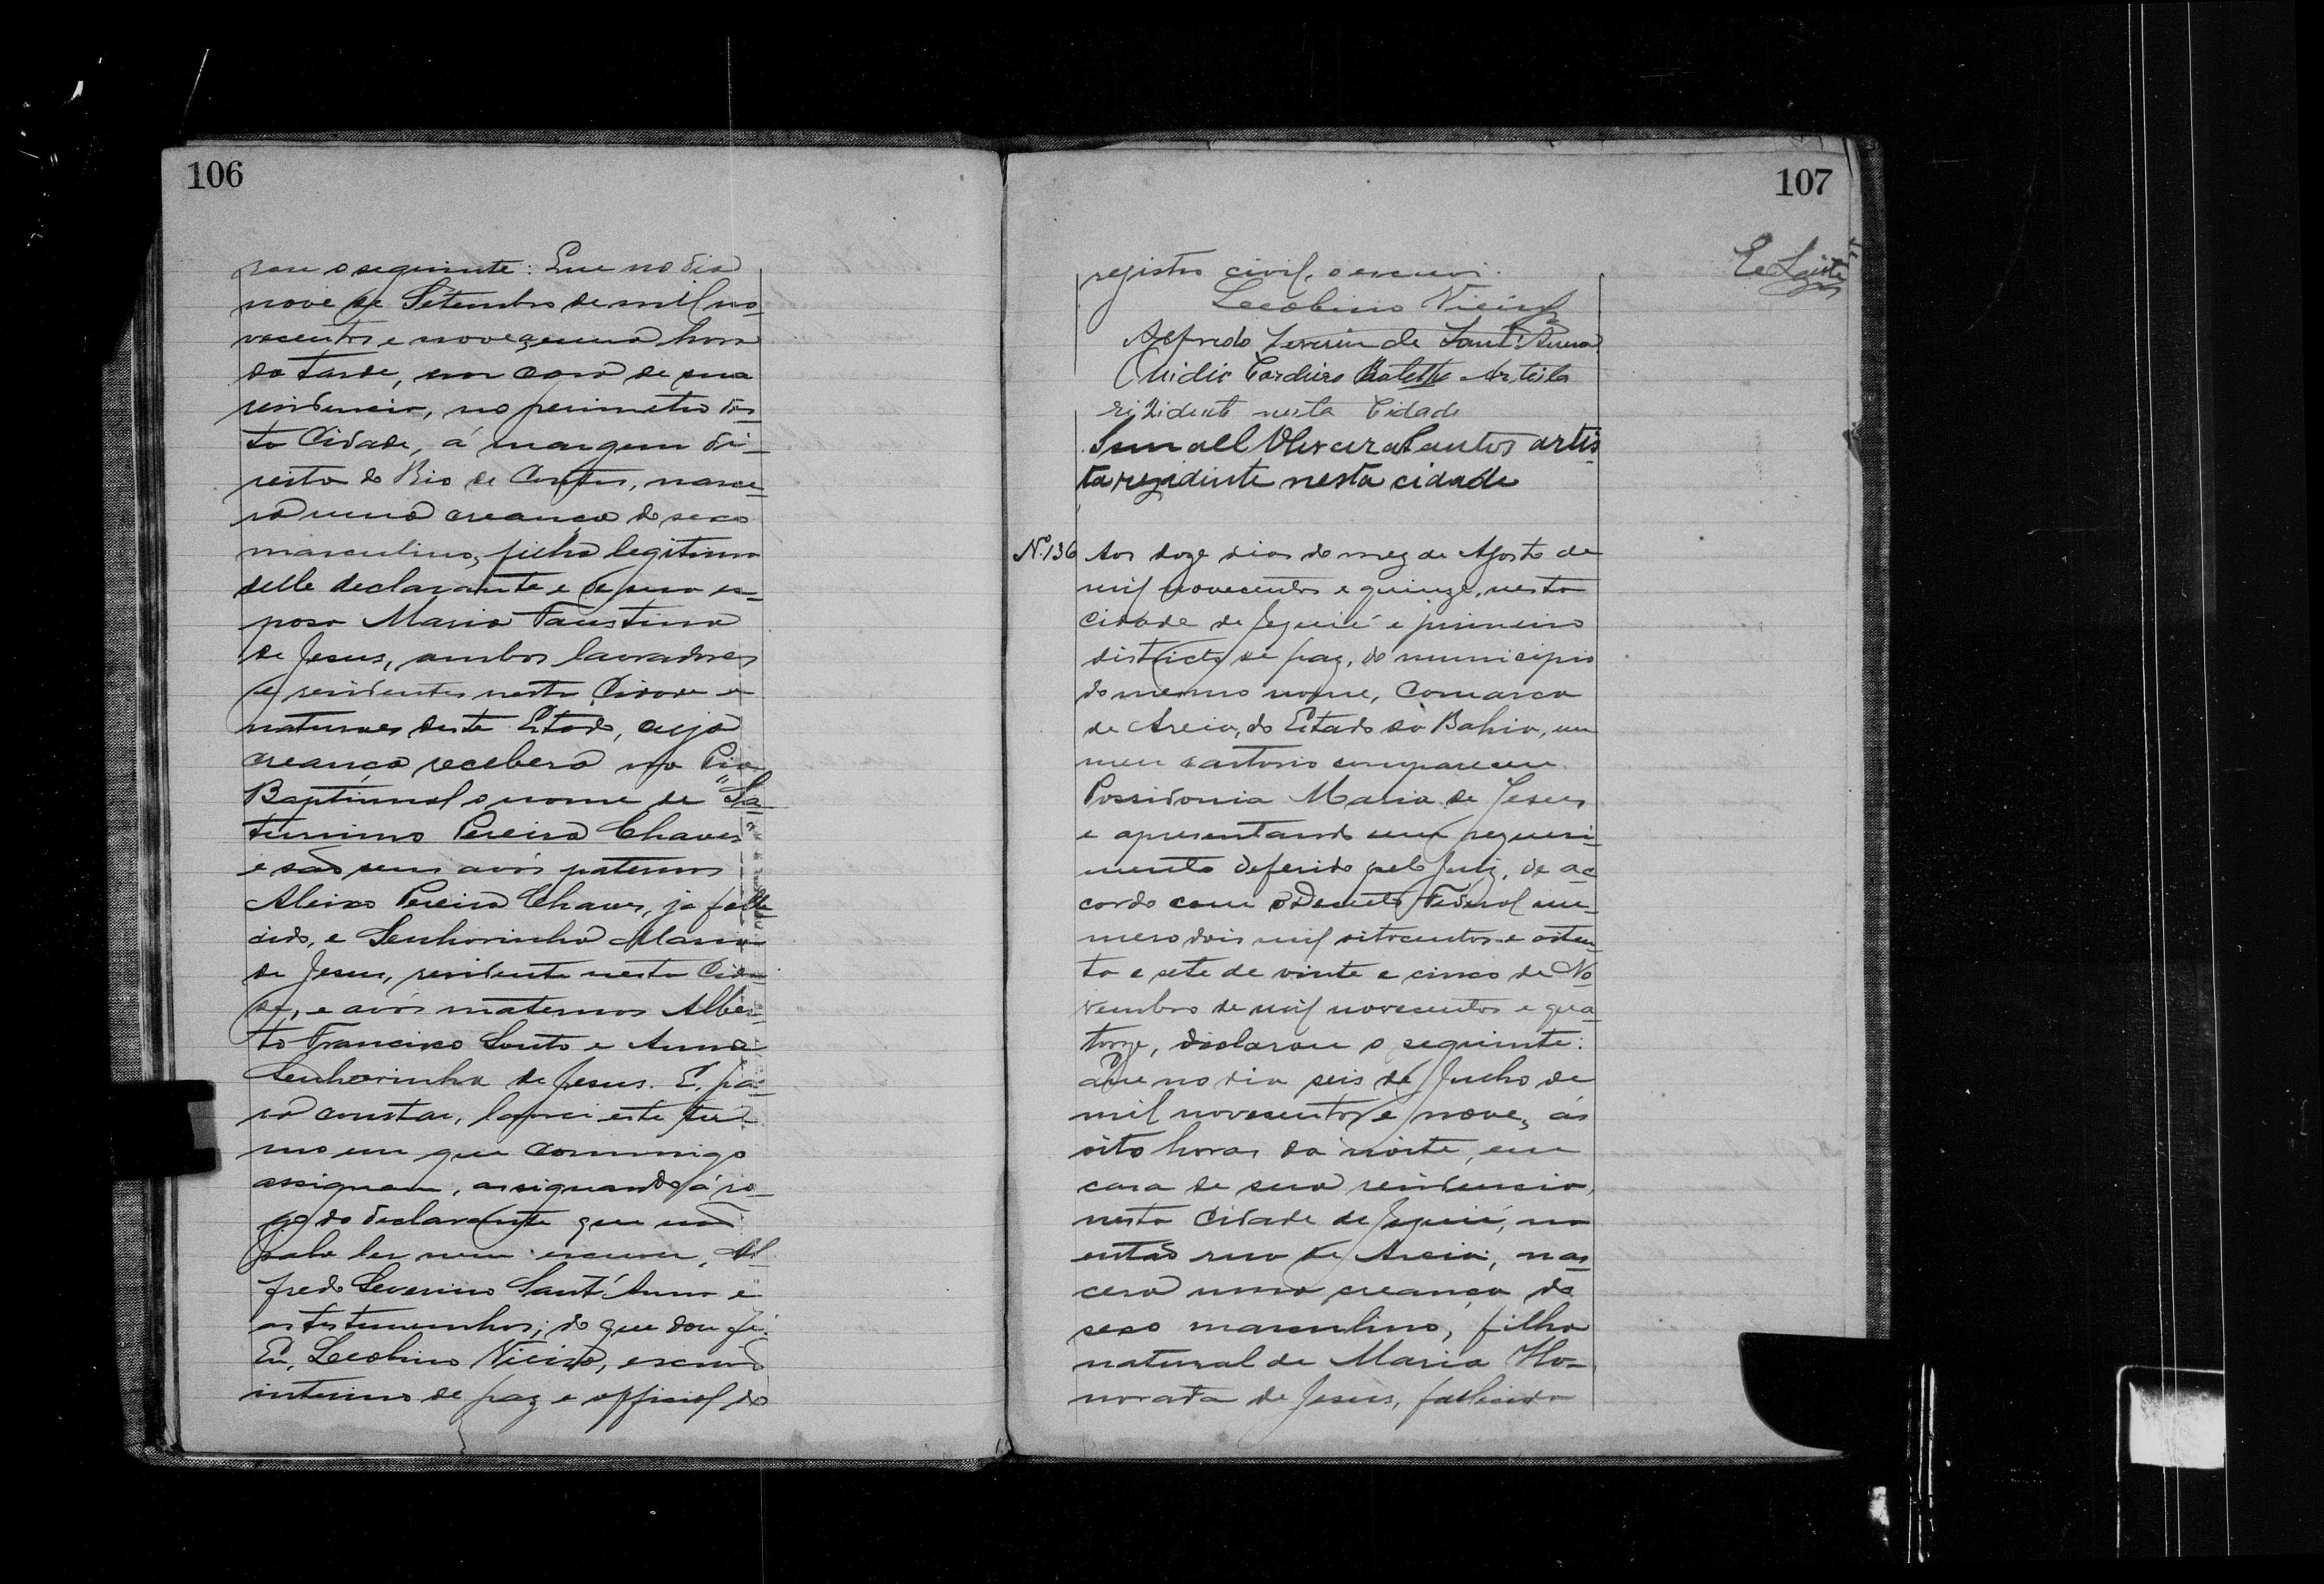 106
rou o seguinte: Que no dia
nove de Setembro de mil no-
vecentos e nove, a uma hora
da tarde, em casa de sua
residencia, no perimetro des-
ta Cidade, á margem di-
reita do Rio de Contas, nasce-
ra uma creança do sexo
masculino, filha legitima
delle declarante e de sua es-
posa Maria Faustina
de Jesus, ambos lavradores
e residentes nesta Cidade e
naturaes deste Estado, cuja
creança receberá na Pia
Baptismal o nome de "Sa-
turnino Pereira Chaves"
e são seus avós paternos
Aleixo Pereira Chaves, já falle-
cido, e Senhorinha Maria
de Jesus, residente nesta Cida-
de, e avós maternos Alber-
to Francisco Souto e Anna
Senhorinha de Jesus. E, pa-
ra constar, lavrei este ter-
mo em que commigo
assignam, assignando á ro-
go do declarante que não
sabe ler nem escrever, Al-
fredo Severino Sant'Anna e
as testemunhas; do que dou fé.
Eu, Leolino Vieira, escrivão
interino de paz e official do
107
registro civil, o escrevi.
Vieira
Alfredo Severin de Sant'Anna
Cordeiro Artista
rizidente nesta Cidade
Ismael Oliveira Santos artis-
ta rezidente nesta cidade
Nº 136 Aos doze dias do mez de Agosto de
mil novecentos e quinze, nesta
Cidade de Jequié e primeiro
districto de paz, do municipio
do mesmo nome, Comarca
de Areia, do Estado da Bahia, em
meu cartorio compareceu
Possidonia Maria de Jesus
e apresentando um requeri-
mento deferido pelo Juiz, de ac-
cordo com o Decreto Federal nu-
mero dois mil oitocentos e oiten-
ta e sete de vinte e cinco de No-
vembro de mil novecentos e qua-
torze, declarou o seguinte:
Que no dia seis de Julho de
mil novecentos e nove, ás
oito horas da noite, em
casa de sua residencia,
nesta Cidade de Jequié, na
então rua de Areia, nas-
cera uma creança do
sexo masculino, filha
natural de Maria Ho-
norata de Jesus, fallecida